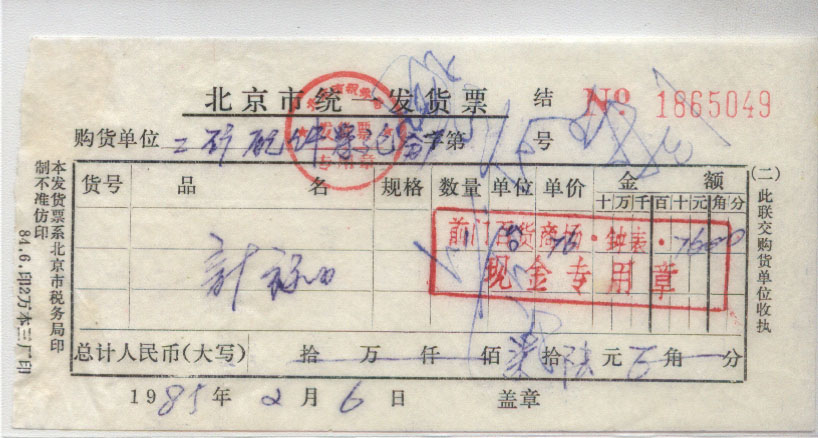 北京市统一发货票 结 № 1865049
购货单位 字第 号
发货票
专用章
货号 品名 规格 数量 单位 单价 金额
十万千百十元角分
前门百货商场·钟表·
现金专用章
1 台 76 7600
总计人民币(大写) 拾 万 仟 佰 柒 拾 陆 元 角 分
1985年2月6日 盖章
(二)此联交购货单位收执
本发货票系北京市税务局印
制不准仿印
84.6.印2万本三厂印